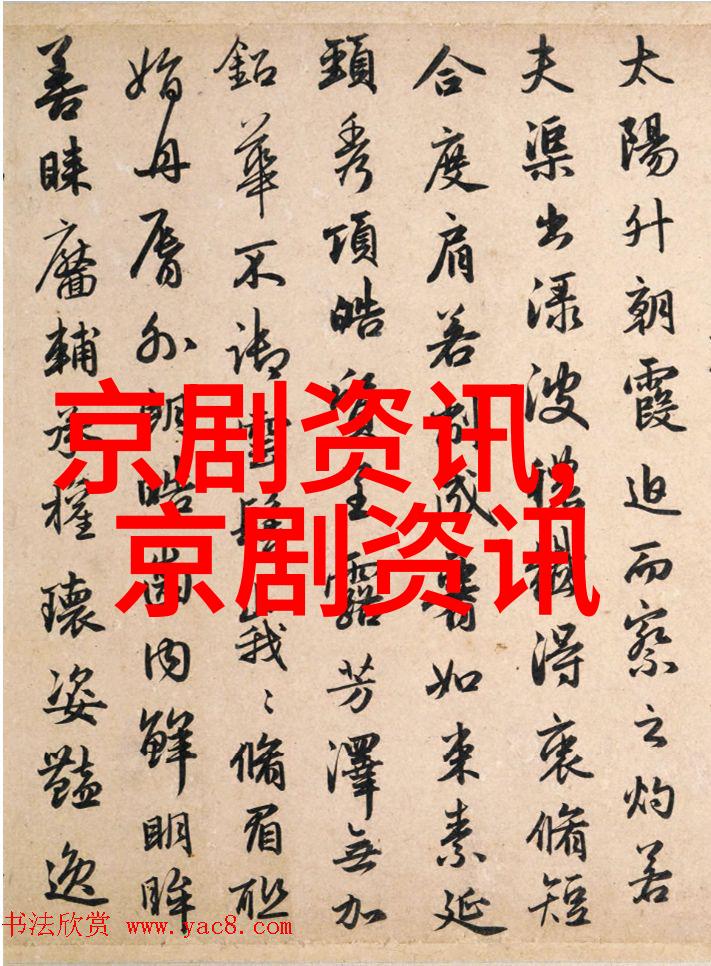 太陽升朝霞迫而察之灼若
夫渠出淥波穠纖得衷脩短
合度肩若削成要如束素延
頸秀項皓質呈露芳澤無加
鉛華不御雲髻峩〻脩眉聯
娟丹脣外朗皓齒内鮮明眸
善睞靨輔承權瓌姿豔逸
京剧资讯,
京剧资讯
书法欣赏 www.yac8.com